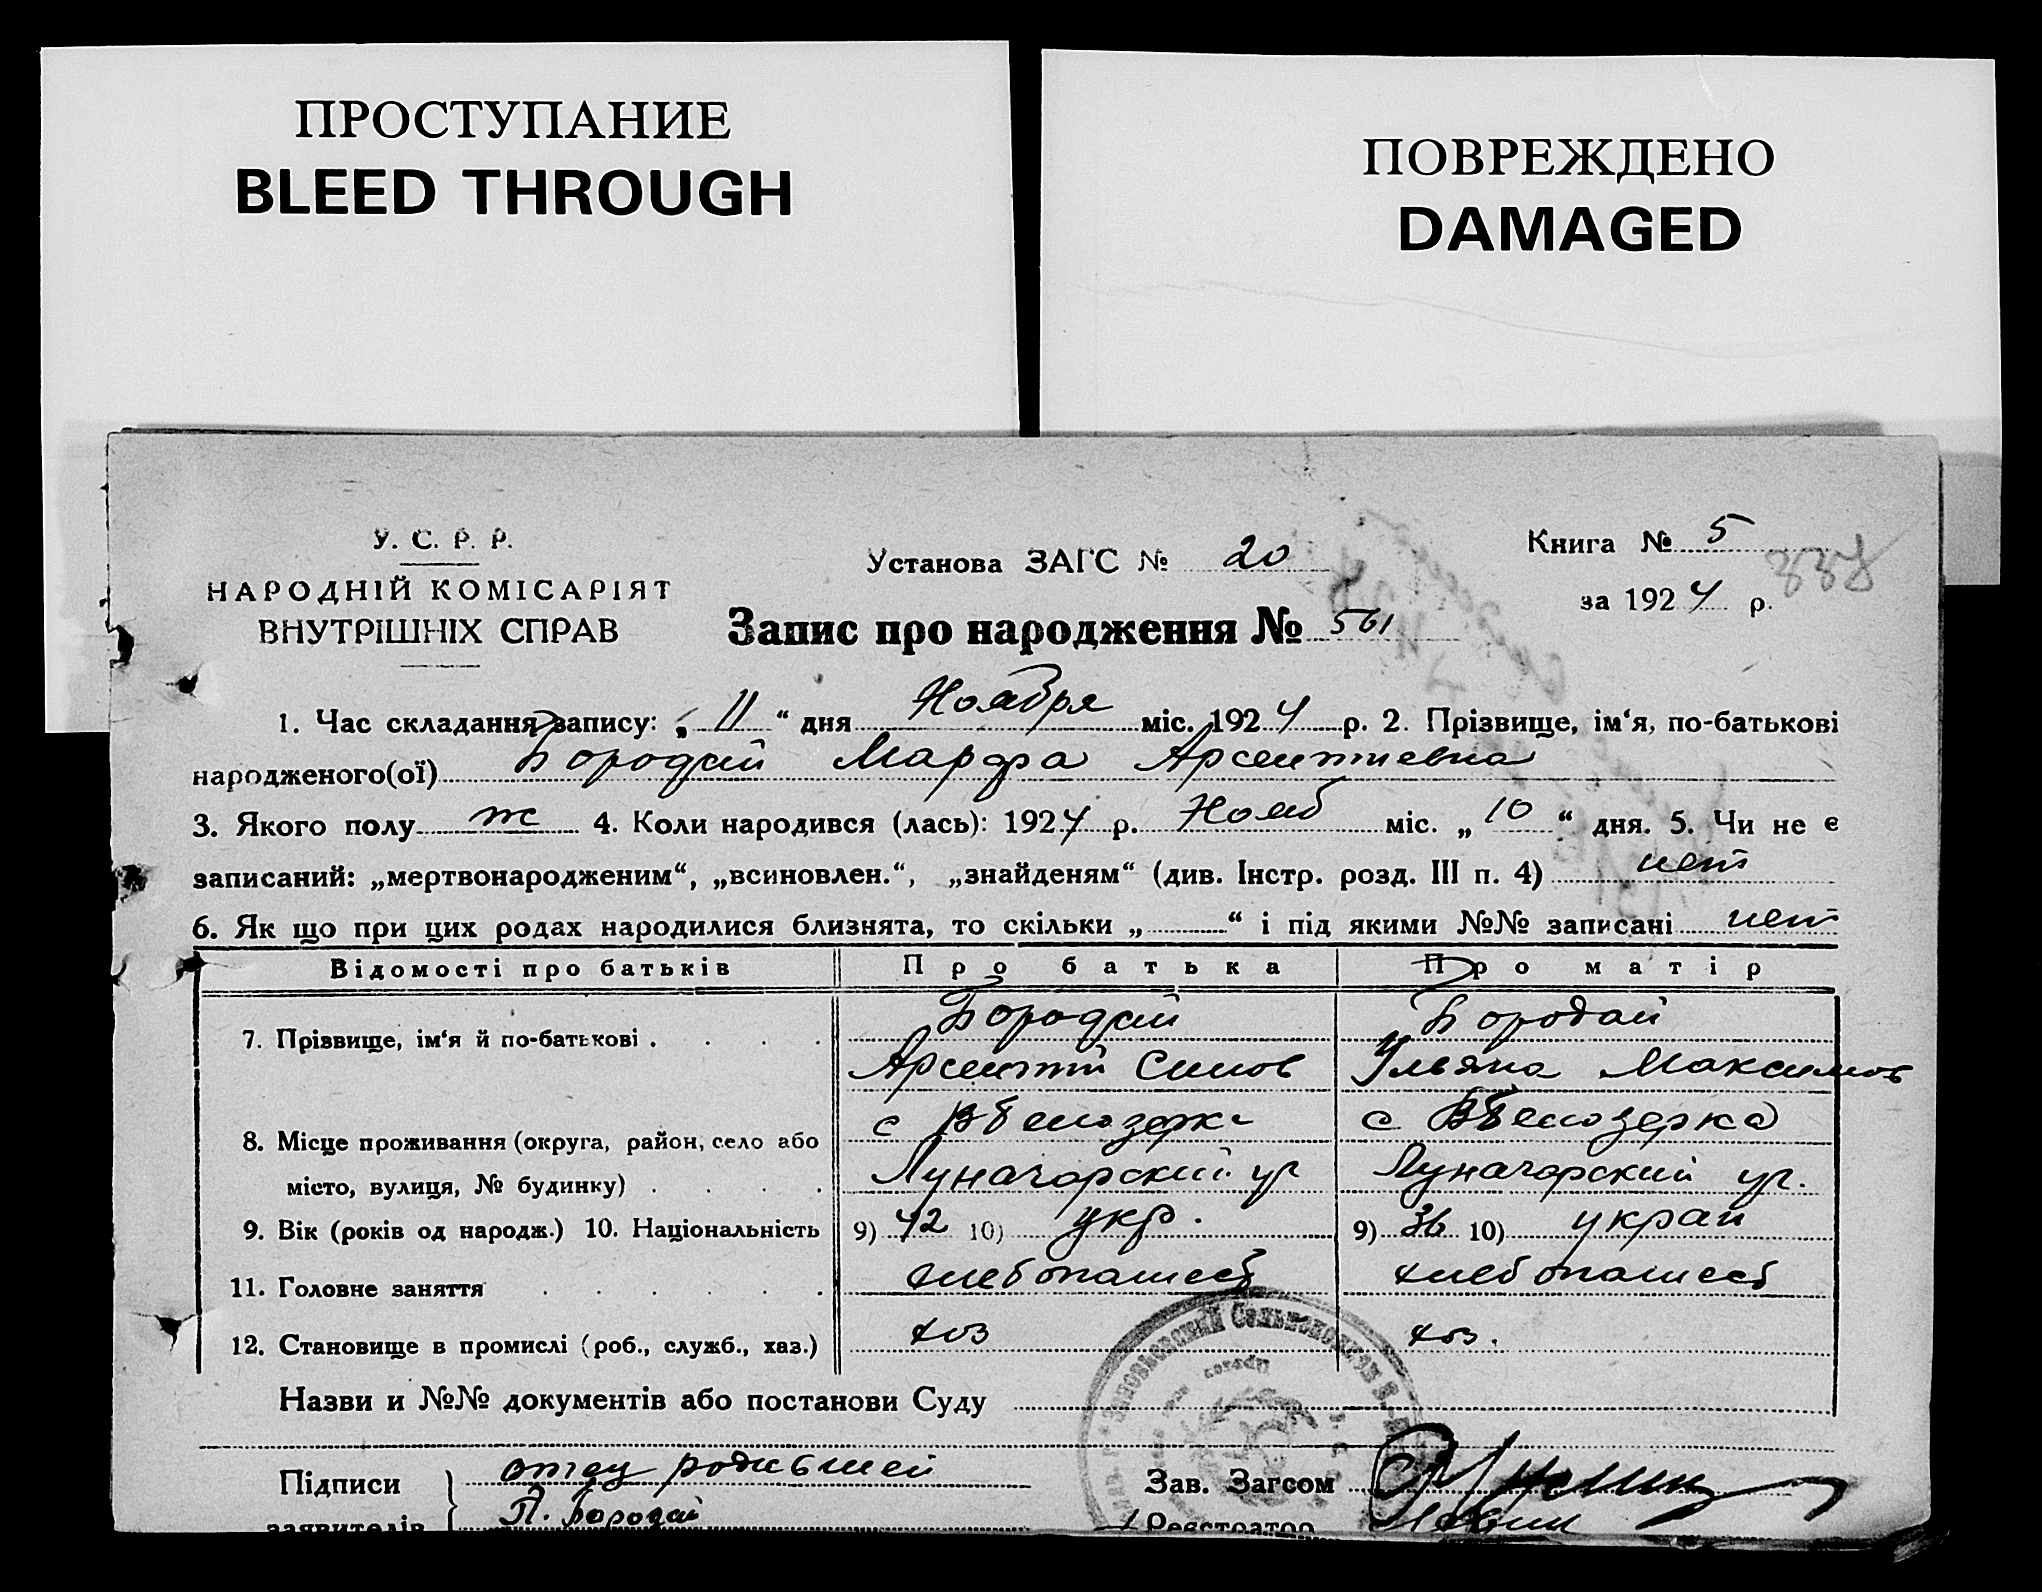 ПРОСТУПАНИЕ
BLEED THROUGH
ПОВРЕЖДЕНО
DAMAGED
У. С. Р. Р.
НАРОДНІЙ КОМІСАРІЯТ
ВНУТРІШНІХ СПРАВ
Установа ЗАГС № 20
Книга № 5
за 1924 р.
Запис про народження № 561
1. Час складання запису: „ 11 “ дня Ноября міс. 1924 р. 2. Прізвище, ім‘я, по-батькові
народженого(ої) Бородай Марфа Арсентиевна
3. Якого полу ж 4. Коли народився (лась): 1924 р. Нояб міс. „ 10 “ дня. 5. Чи не є
записаний: „мертвонародженим“, „всиновлен.“, „знайденям“ (див. Інстр. розд. III п. 4) нет
6. Як що при цих родах народилися близнята, то скільки „ “ і під якими №№ записані нет
Відомості про батьків Про батька Про матір
7. Прізвище, ім‘я й по-батькові . Бородай Бородай
Арсентий Симов Ульяна Максимов
8. Місце проживання (округа, район, село або с с ВБелозерка
місто, вулиця, № будинку) Луначарский ул Луначарский ул.
9. Вік (років од народж.) 10. Національність 9) 42 10) укр. 9) 36 10) украй
11. Головне заняття хлебопашест хлебопашест
12. Становище в промислі (роб., служб., хаз.) хоз хоз.
Назви и №№ документів або постанови Суду
Підписи отец родившей Зав. Загсом
заявителів Бородай Реєстратор